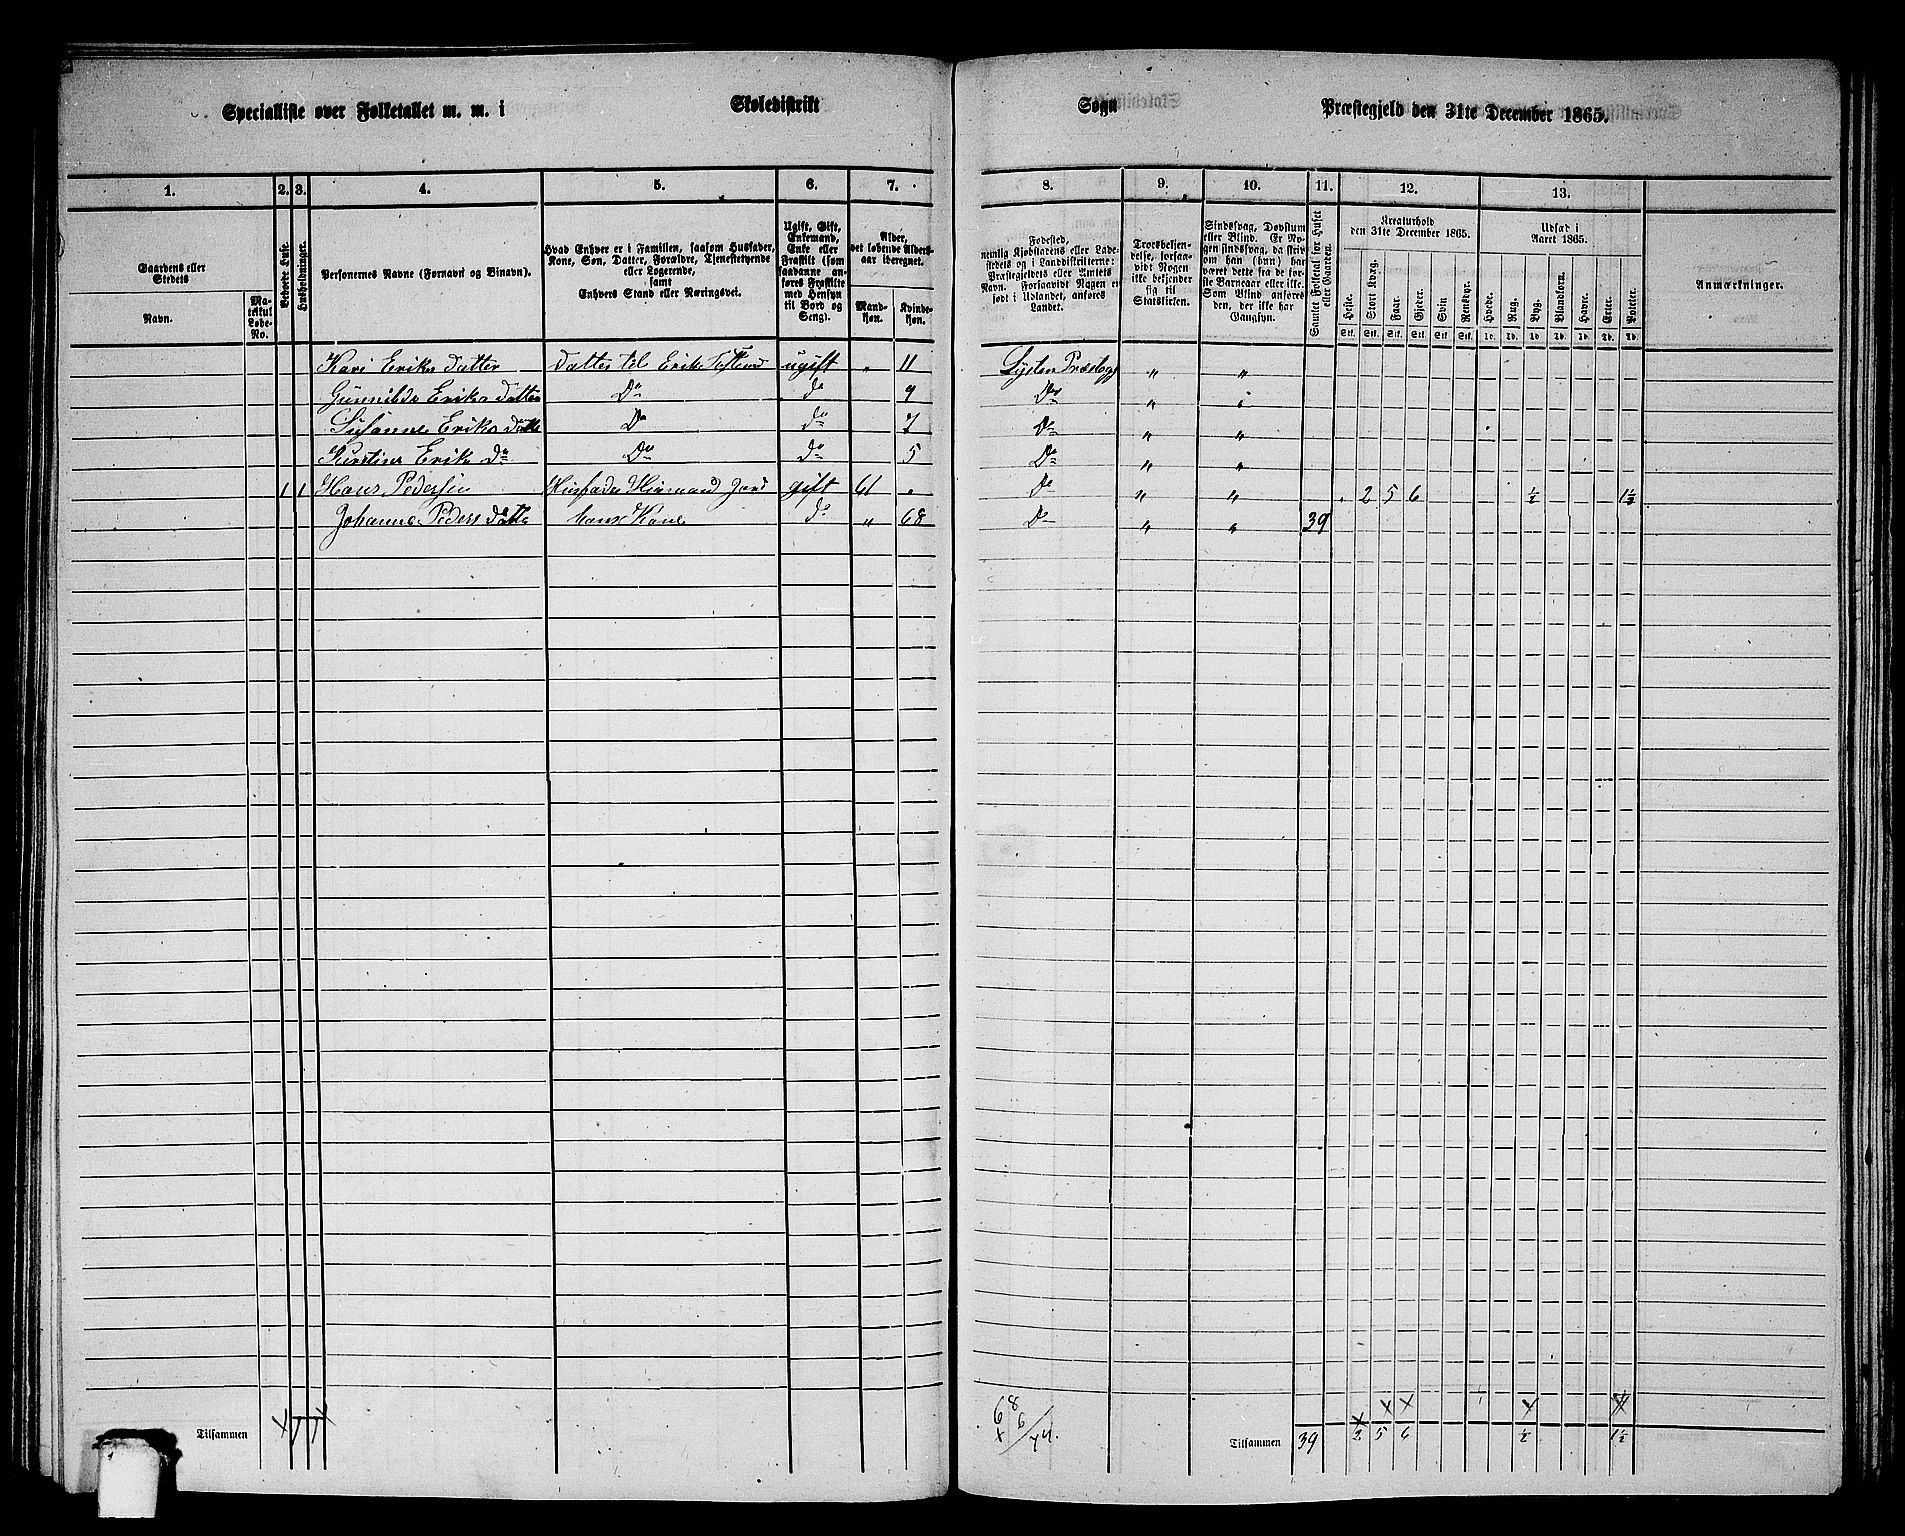 Specialliste over Folketallet m. m. i Skoledistrikt Sogn Præstegjeld den 31te December 1865.
1. 2. 3. 4. 5. 6. 7. 8. 9. 10. 11. 12. 13.
Gaardens eller Stedets
Navn.
Matrikul Løbe-No.
Beboede Huse.
Husholdninger.
Personernes Navne (Fornavn og Binavn).
Hvad Enhver er i Familien, saasom Husfader, Kone, Søn, Datter, Forældre, Tjenestetyende eller Logerende, samt Enhvers Stand eller Næringsvei.
Ugift, Gift, Enkemand, Enke eller Fraskilt (som saadanne anføres Fraskilte med Hensyn til Bord og Seng).
Alder, det løbende Alders-aar iberegnet.
Mand-kjøn.
Kvinde-kjøn.
Fødested, nemlig Kjøbstadens eller Lade-stedets og i Landdistrikterne: Præstegjeldets eller Amtets Navn. Forsaavidt Nogen er født i Udlandet, anføres Landet.
Troesbekjen-delse, forsaa-vidt Nogen ikke bekjender sig til Statskirken.
Sindssvag, Døvstum eller Blind. Er No-gen sindssvag, da skriv-es om han (hun) har været dette fra de før-ste Barneaar eller ikke. Som Blind anføres den, der ikke har Gangsyn.
Samlet Folketal for Huset eller Gaarden.
Kreaturhold den 31te December 1865.
Heste. Stort Kvæg. Faar. Gjeder. Svin Rensdyr.
Udsæd i Aaret 1865.
Hvede. Rug. Byg. Blandkorn. Havre. Erter. Poteter.
Anmærkninger.
Stk. Stk. Stk. Stk. Stk. Stk. Td. Td. Td. Td. Td. Td. Td.
Kari Eriks Datter Datter til Erik ugift " 11 Lyster Præstegj " "
Gunnilde Eriks Datter Do do 9 Do "
Susanne Eriks Datt Do do 7 Do " "
Kirstine Erik Do Do do 5 Do " "
1 1 Hans Pedersen Husfader gift 61 . Do " " . 2 5 6 ½ 1½
Johanne Peders Datte hans Kone do " 68 Do " " 39
Tilsammen
68
6/74.
Tilsammen 39 2 5 6 ½ 1½